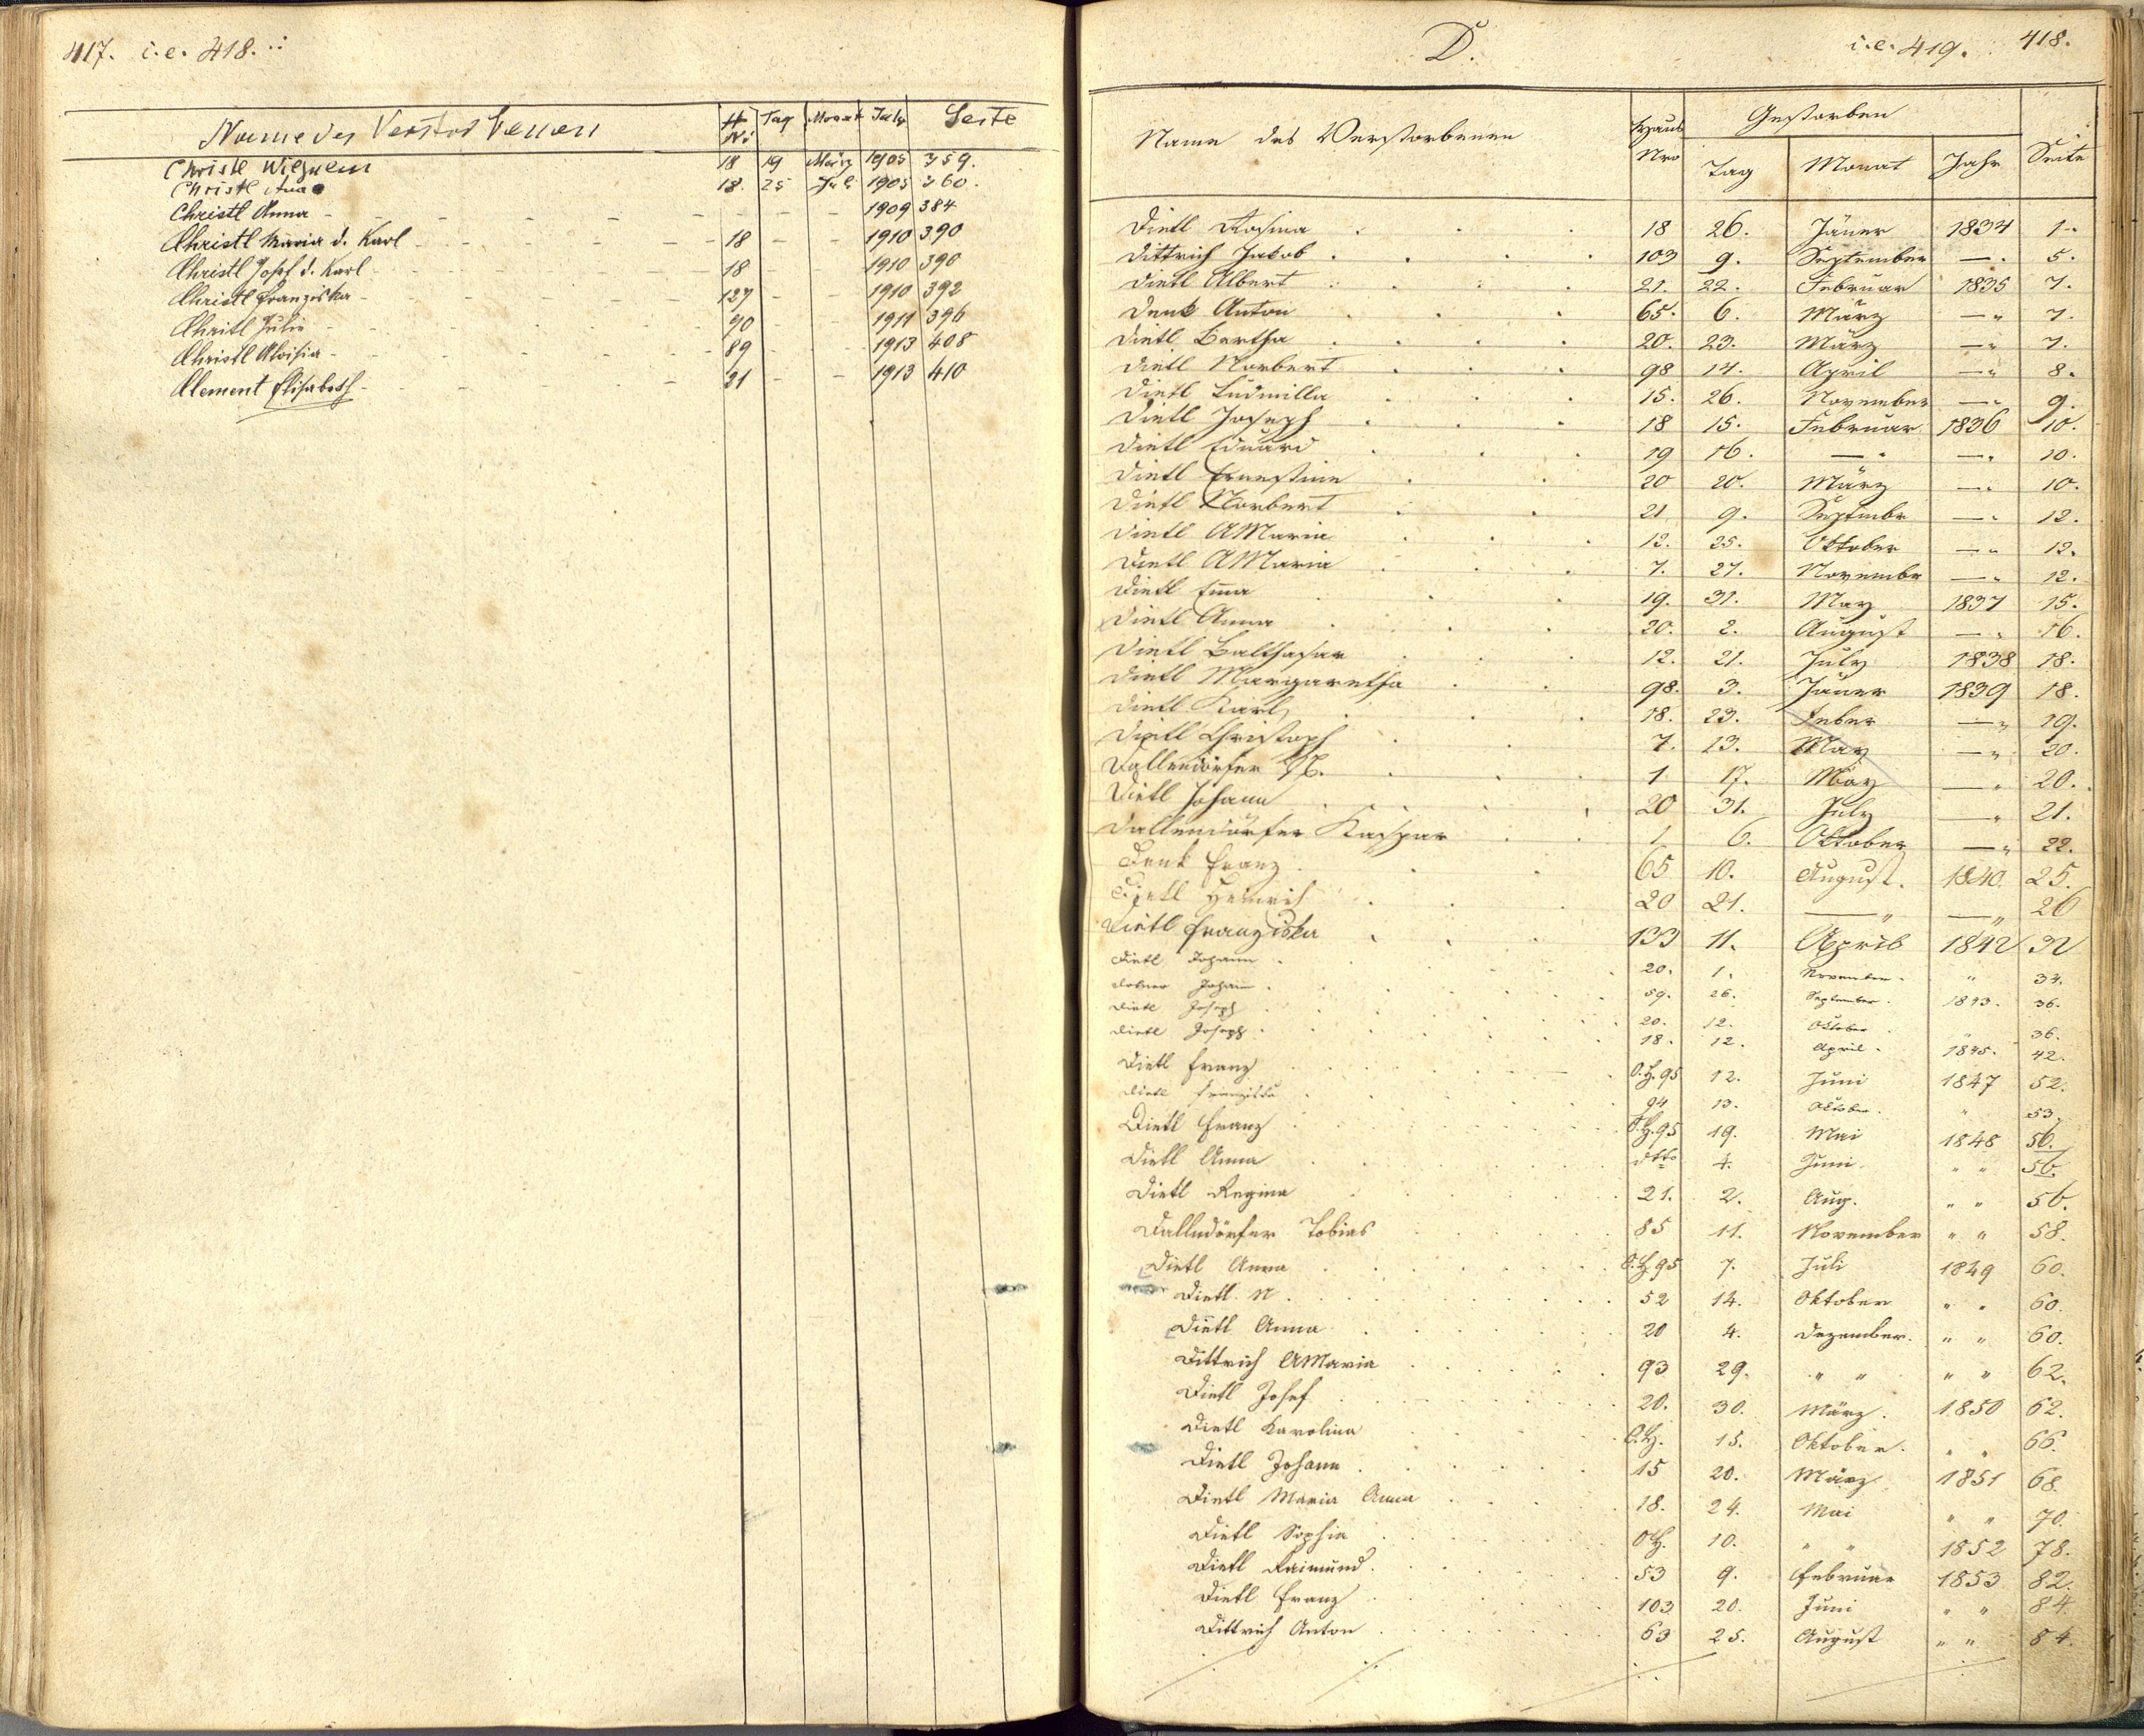 417. i.e. 418.
Name des Verstorbenen H Nr Tag Monat Jahr Seite
Christl Wilhelm 18 19 März 1905 359.
Christl 18. 25 Juli 1905 360.
Christl Anna - - - 1909 384
Christl Maria d. Karl 18 - - 1910 390
Christl Josef d. Karl 18 - - 1910 390
Christl Franziska 127 - - 1910 392
Christl Julie 90 - - 1911 396
Christl Aloisia 89 - - 1913 408
Clement Elisabeth 31 - - 1913 410
D. i.e. 419. 418.
Name des Verstorbenen Haus Nro Gestorben Seite
Tag Monat Jahr
Dietl Rosina 18 26. Jäner 1834 1.
Dittrich Jakob 103 9. September —. 5.
Dietl Albert 21. 22. Februar 1835 7.
Denk Anton 65. 6. März —" 7.
Dietl Bertha 20. 23. März —" 7.
Dietl Norbert 98 14. April —" 8.
Dietl Ludmilla 15. 26. November —" 9.
Dietl Joseph 18 15. Februar 1836 10.
Dietl Eduard 19 16. —" —" 10.
Dietl Ernestine 20 20. März —" 10.
Dietl Norbert 21 9. Septembr —" 12.
Dietl AMaria 12. 25. Oktober —" 12.
Dietl AMaria 7. 27. Novembr —" 12.
Dietl Emma 19. 31. May 1837 15.
Dietl Anna 20. 2. August —" 16.
Dietl Balthasar 12. 21. July 1838 18.
Dietl Margaretha 98. 3. Jäner 1839 18.
Dietl Karl 18. 23. Feber —" 19.
Dietl Christoph 7. 13. May —" 20.
Dallendörfer 1 17. May —" 20.
Dietl Johann 20 31. July —" 21.
Dallendörfer Kaspar 1 6. Oktober —" 22.
Denk Franz 65 10. August. 1840. 25.
Dietl Heinrich 20 21. —" —" 26
Dietl Franziska 133 11. April 1842 32
Dietl Johann 20. 1. November. " 34.
Johann 59. 26. September. 1843. 36.
Dietl Joseph 20. 12. Oktober. " 36.
Dietl Joseph 18. 12. April. 1845. 42.
Dietl Franz O.H. 95 12. Juni 1847 52.
Dietl Franziska 94 13. Oktober. " 53.
Dietl Franz O.H. 95 19. Mai 1848 56.
Dietl Anna dtto 4. Juni " " 56.
Dietl Regina 21. 2. Aug. " " 56.
Dallndörfer Tobias 85 11. November " " 58.
Dietl Anna O.H. 95 7. Juli 1849 60.
Dietl N. 52 14. Oktober " " 60.
Dietl Anna 20 4. Dezember. " " 60.
Dittrich AMaria 93 29. " " " " 62.
Dietl Josef 20. 30. März. 1850 62.
Dietl Karolina O.H. 15. Oktober. " " 66.
Dietl Johann 15 20. März 1851 68.
Dietl Maria Anna 18. 24. Mai " " 70.
Dietl Sophia OH. 10. " " 1852 78.
Dietl Raimund. 53 9. Februar 1853 82.
Dietl Franz 103 20. Juni " " 84.
Dittrich Anton 63 25. August " " 84.